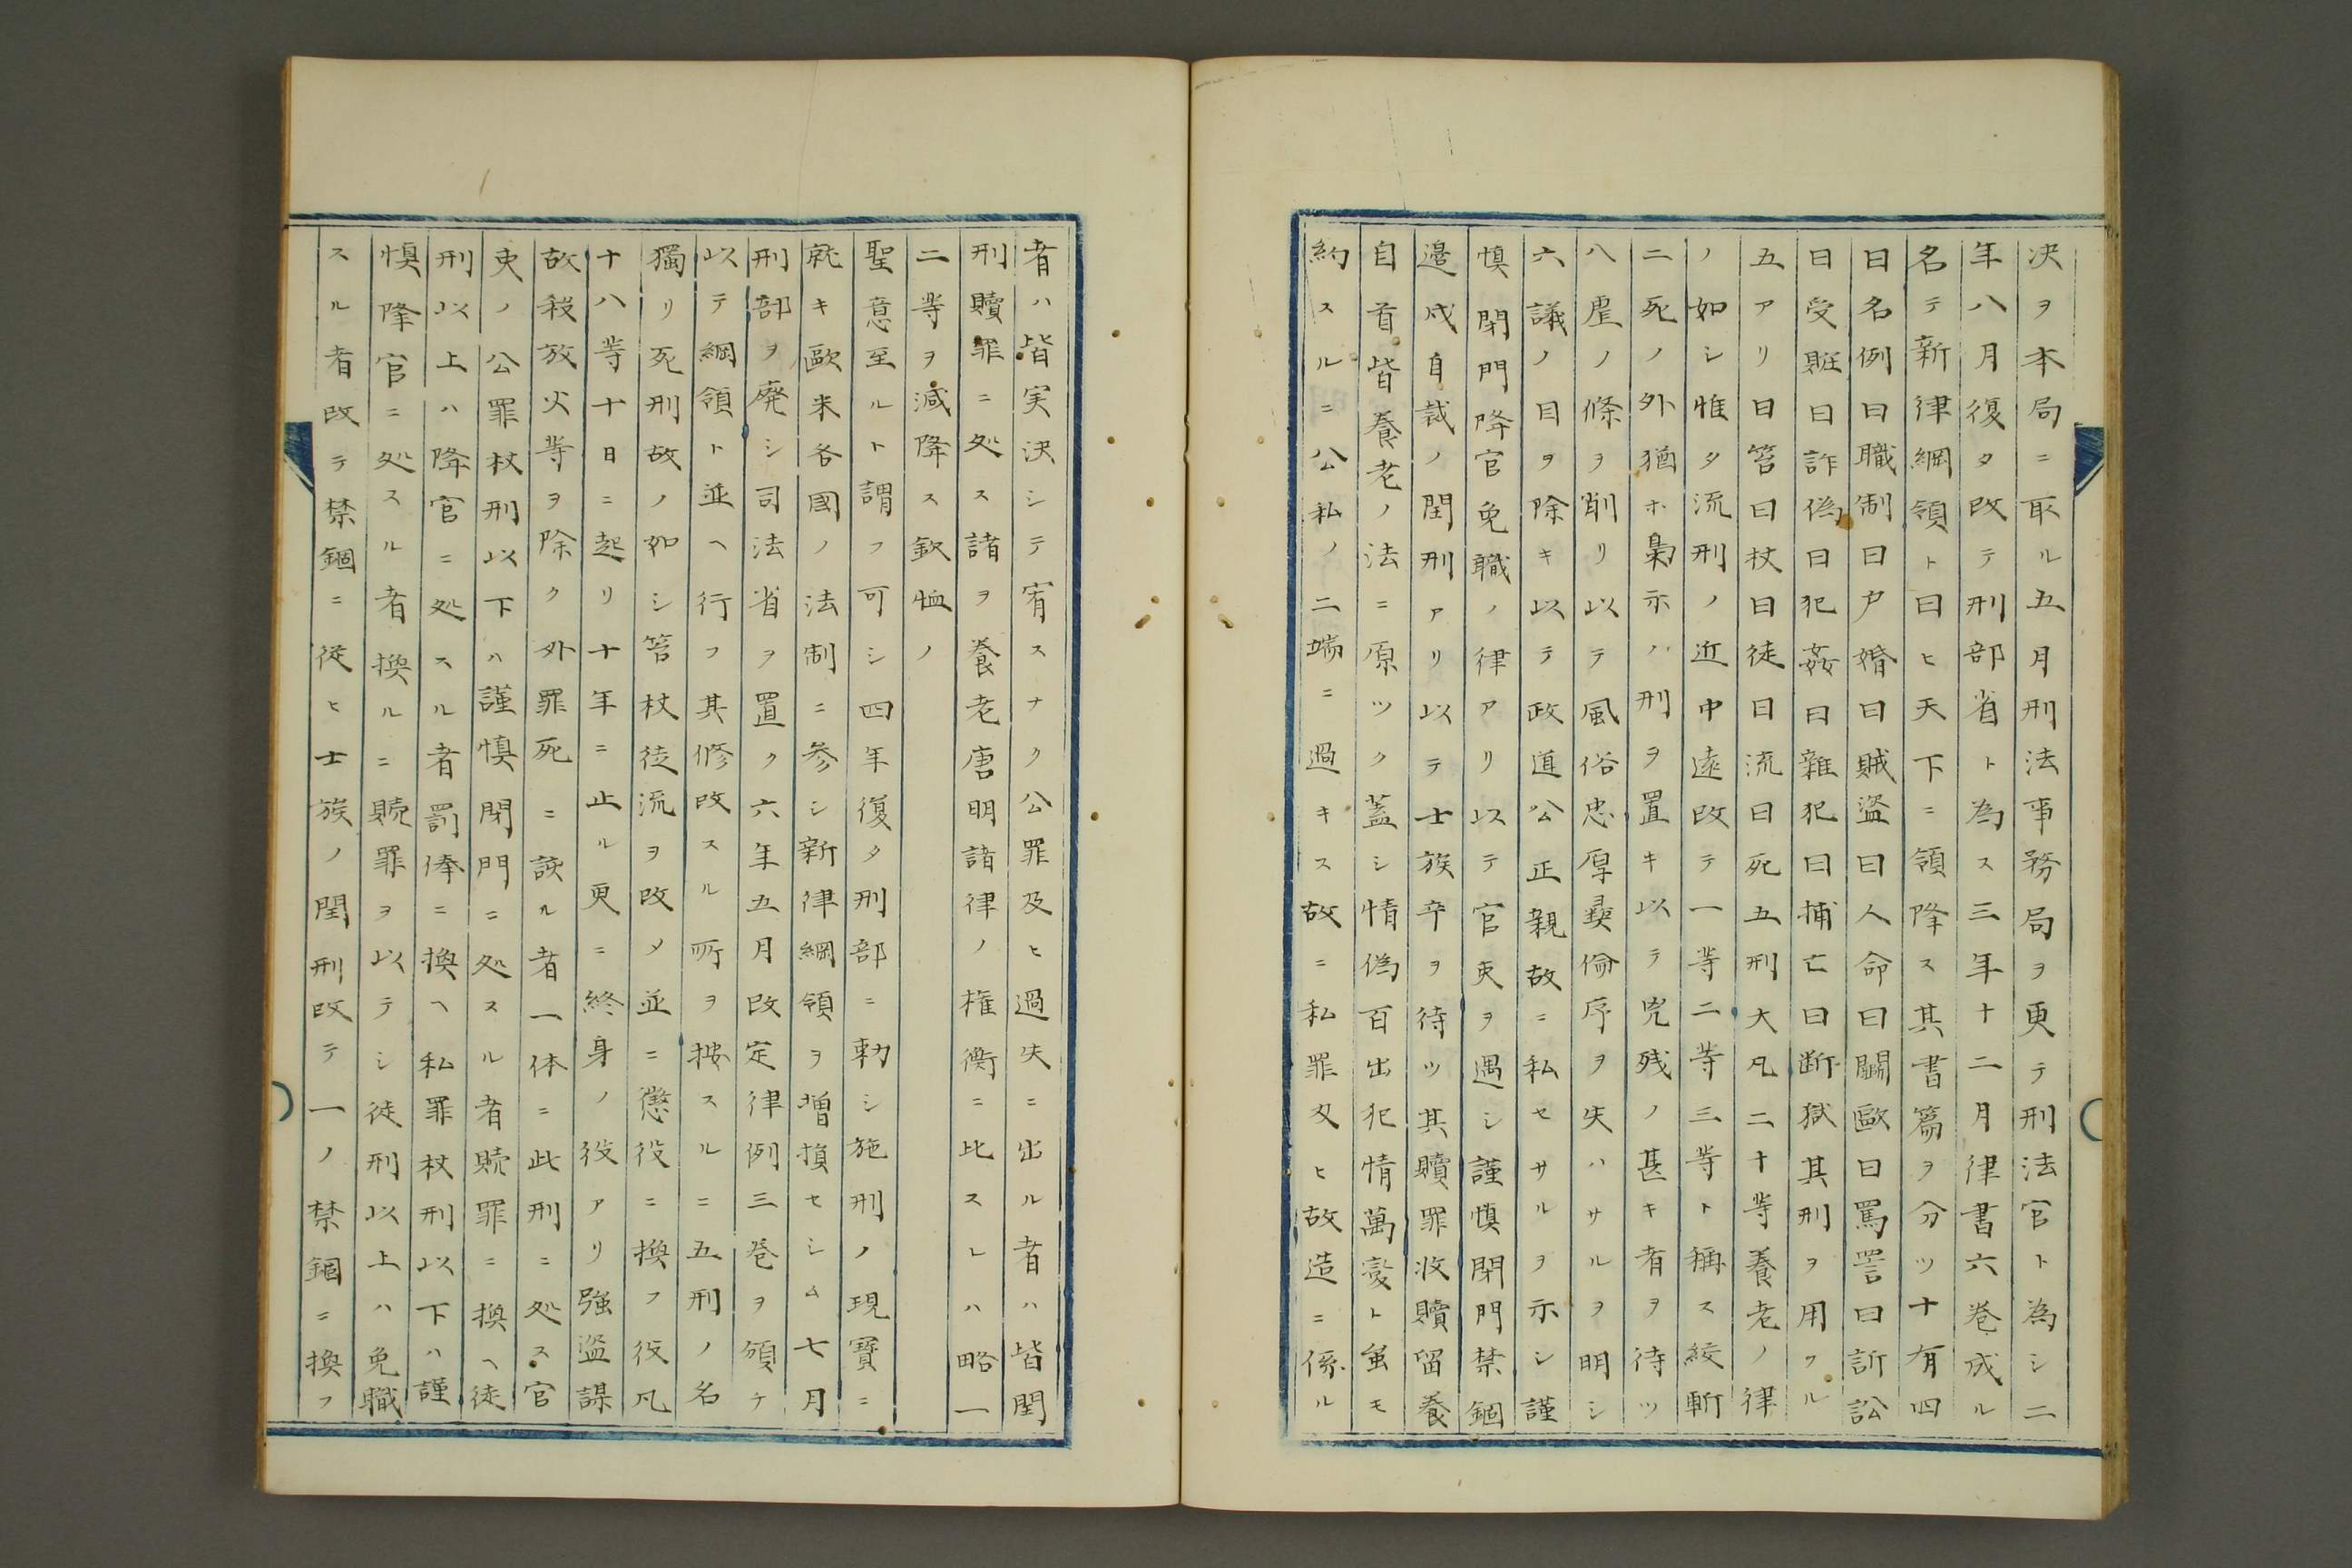 决ヲ本局ニ取ル五月刑法事務局ヲ更テ刑法官ト為シ二
年八月復タ改テ刑部省ト為ス三年十二月律書六巻成ル
名テ新律綱領ト曰ヒ天下ニ領降ス其書篇ヲ分ツ十有四
曰名例曰職制曰户婚曰賊盗曰人命曰闘歐曰罵詈曰訴訟
曰受賍曰詐偽曰犯姦曰雜犯曰捕亡曰断獄其刑ヲ用フル
五アリ曰笞曰杖曰徒曰流曰死五刑大凡二十等養老ノ律
ノ如シ惟タ流刑ノ近中遠改テ一等二等三等ト稱ス絞斬
二死ノ外猶ホ梟示ノ刑ヲ置キ以テ兇残ノ甚キ者ヲ待ツ
八虐ノ條ヲ削リ以テ風俗忠厚彜倫序ヲ失ハサルヲ明シ
六議ノ目ヲ除キ以テ政道公正親故ニ私セサルヲ示シ謹
慎閉門降官免職ノ律アリ以テ官吏ヲ遇シ謹慎閉門禁錮
邉戍自裁ノ閏刑アリ以テ士族卒ヲ待ツ其贖罪收贖留養
自首皆養老ノ法ニ原ツク蓋シ情偽百出犯情萬變ト虽モ
約スルニ公私ノ二端ニ過キス故ニ私罪及ヒ故造ニ係ル
者ハ皆実决シテ宥スナク公罪及ヒ過失ニ出ル者ハ皆閏
刑贖罪ニ処ス諸ヲ養老唐明諸律ノ権衡ニ比スレハ略一
二等ヲ減降ス欽恤ノ
聖意至ルト謂フ可シ四年復タ刑部ニ勅シ施刑ノ現實ニ
就キ歐米各國ノ法制ニ参シ新律綱領ヲ増損セシム七月
刑部ヲ廃シ司法省ヲ置ク六年五月改定律例三巻ヲ頒チ
以テ綱領ト並ヘ行フ其修改スル所ヲ按スルニ五刑ノ名
獨リ死刑故ノ如シ笞杖徒流ヲ改メ並ニ懲役ニ換フ役凡
十八等十日ニ起リ十年ニ止ル更ニ終身ノ役アリ強盗謀
故殺放火等ヲ除ク外罪死ニ該ル者一体ニ此刑ニ処ス官
吏ノ公罪杖刑以下ハ謹慎閉門ニ処スル者贖罪ニ換ヘ徒
刑以上ハ降官ニ処スル者罰俸ニ換ヘ私罪杖刑以下ハ謹
慎降官ニ処スル者換ルニ贖罪ヲ以テシ徒刑以上ハ免職
スル者改テ禁錮ニ従ヒ士族ノ閏刑改テ一ノ禁錮ニ換フ